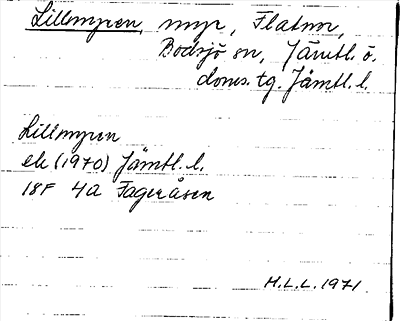 Lillmyren, myr, Flatnor,
Bodsjö sn, Jämtl. ö.
doms. tg. Jämtl. l.
Lillmyren
ek (1970) Jämtl. l.
18F 4a Fageråsen
H.L.L. 1971